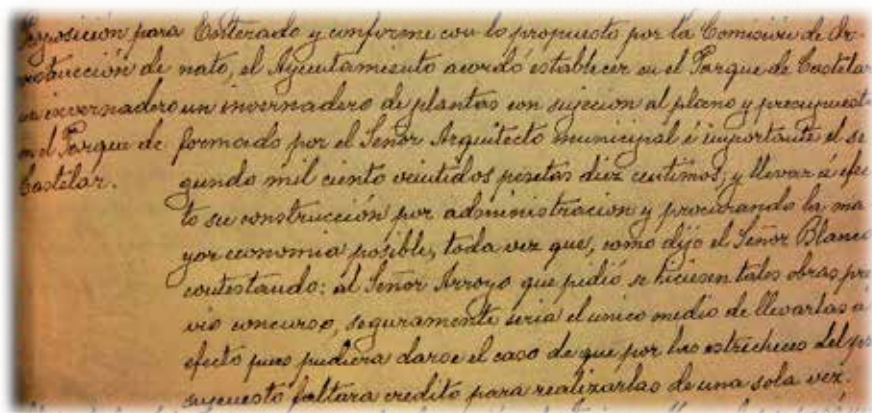 Proposición para
construcción de
un invernadero
en el Parque de
Castelar.
Enterado y conforme con lo propuesto por la Comisión de Or-
nato, el Ayuntamiento acordó establecer en el Parque de Castelar
un invernadero de plantas con sujecion al plano y presupuest
formado por el Señor Arquitecto municipal é importante el se
gundo mil ciento veintidos pesetas diez centimos; y llevar á efec
to su construcción por administracion y procurando la ma
yor economia posible, toda vez que, como dijo el Señor Blanco
contestando: al Señor Arroyo que pidió se hiciesen tales obras pre
vio concurso, seguramente seria el unico medio de llevarlas a
efecto pues pudiera darse el caso de que por las estrecheces del pre
supuesto faltara credito para realizarlas de una sola vez.